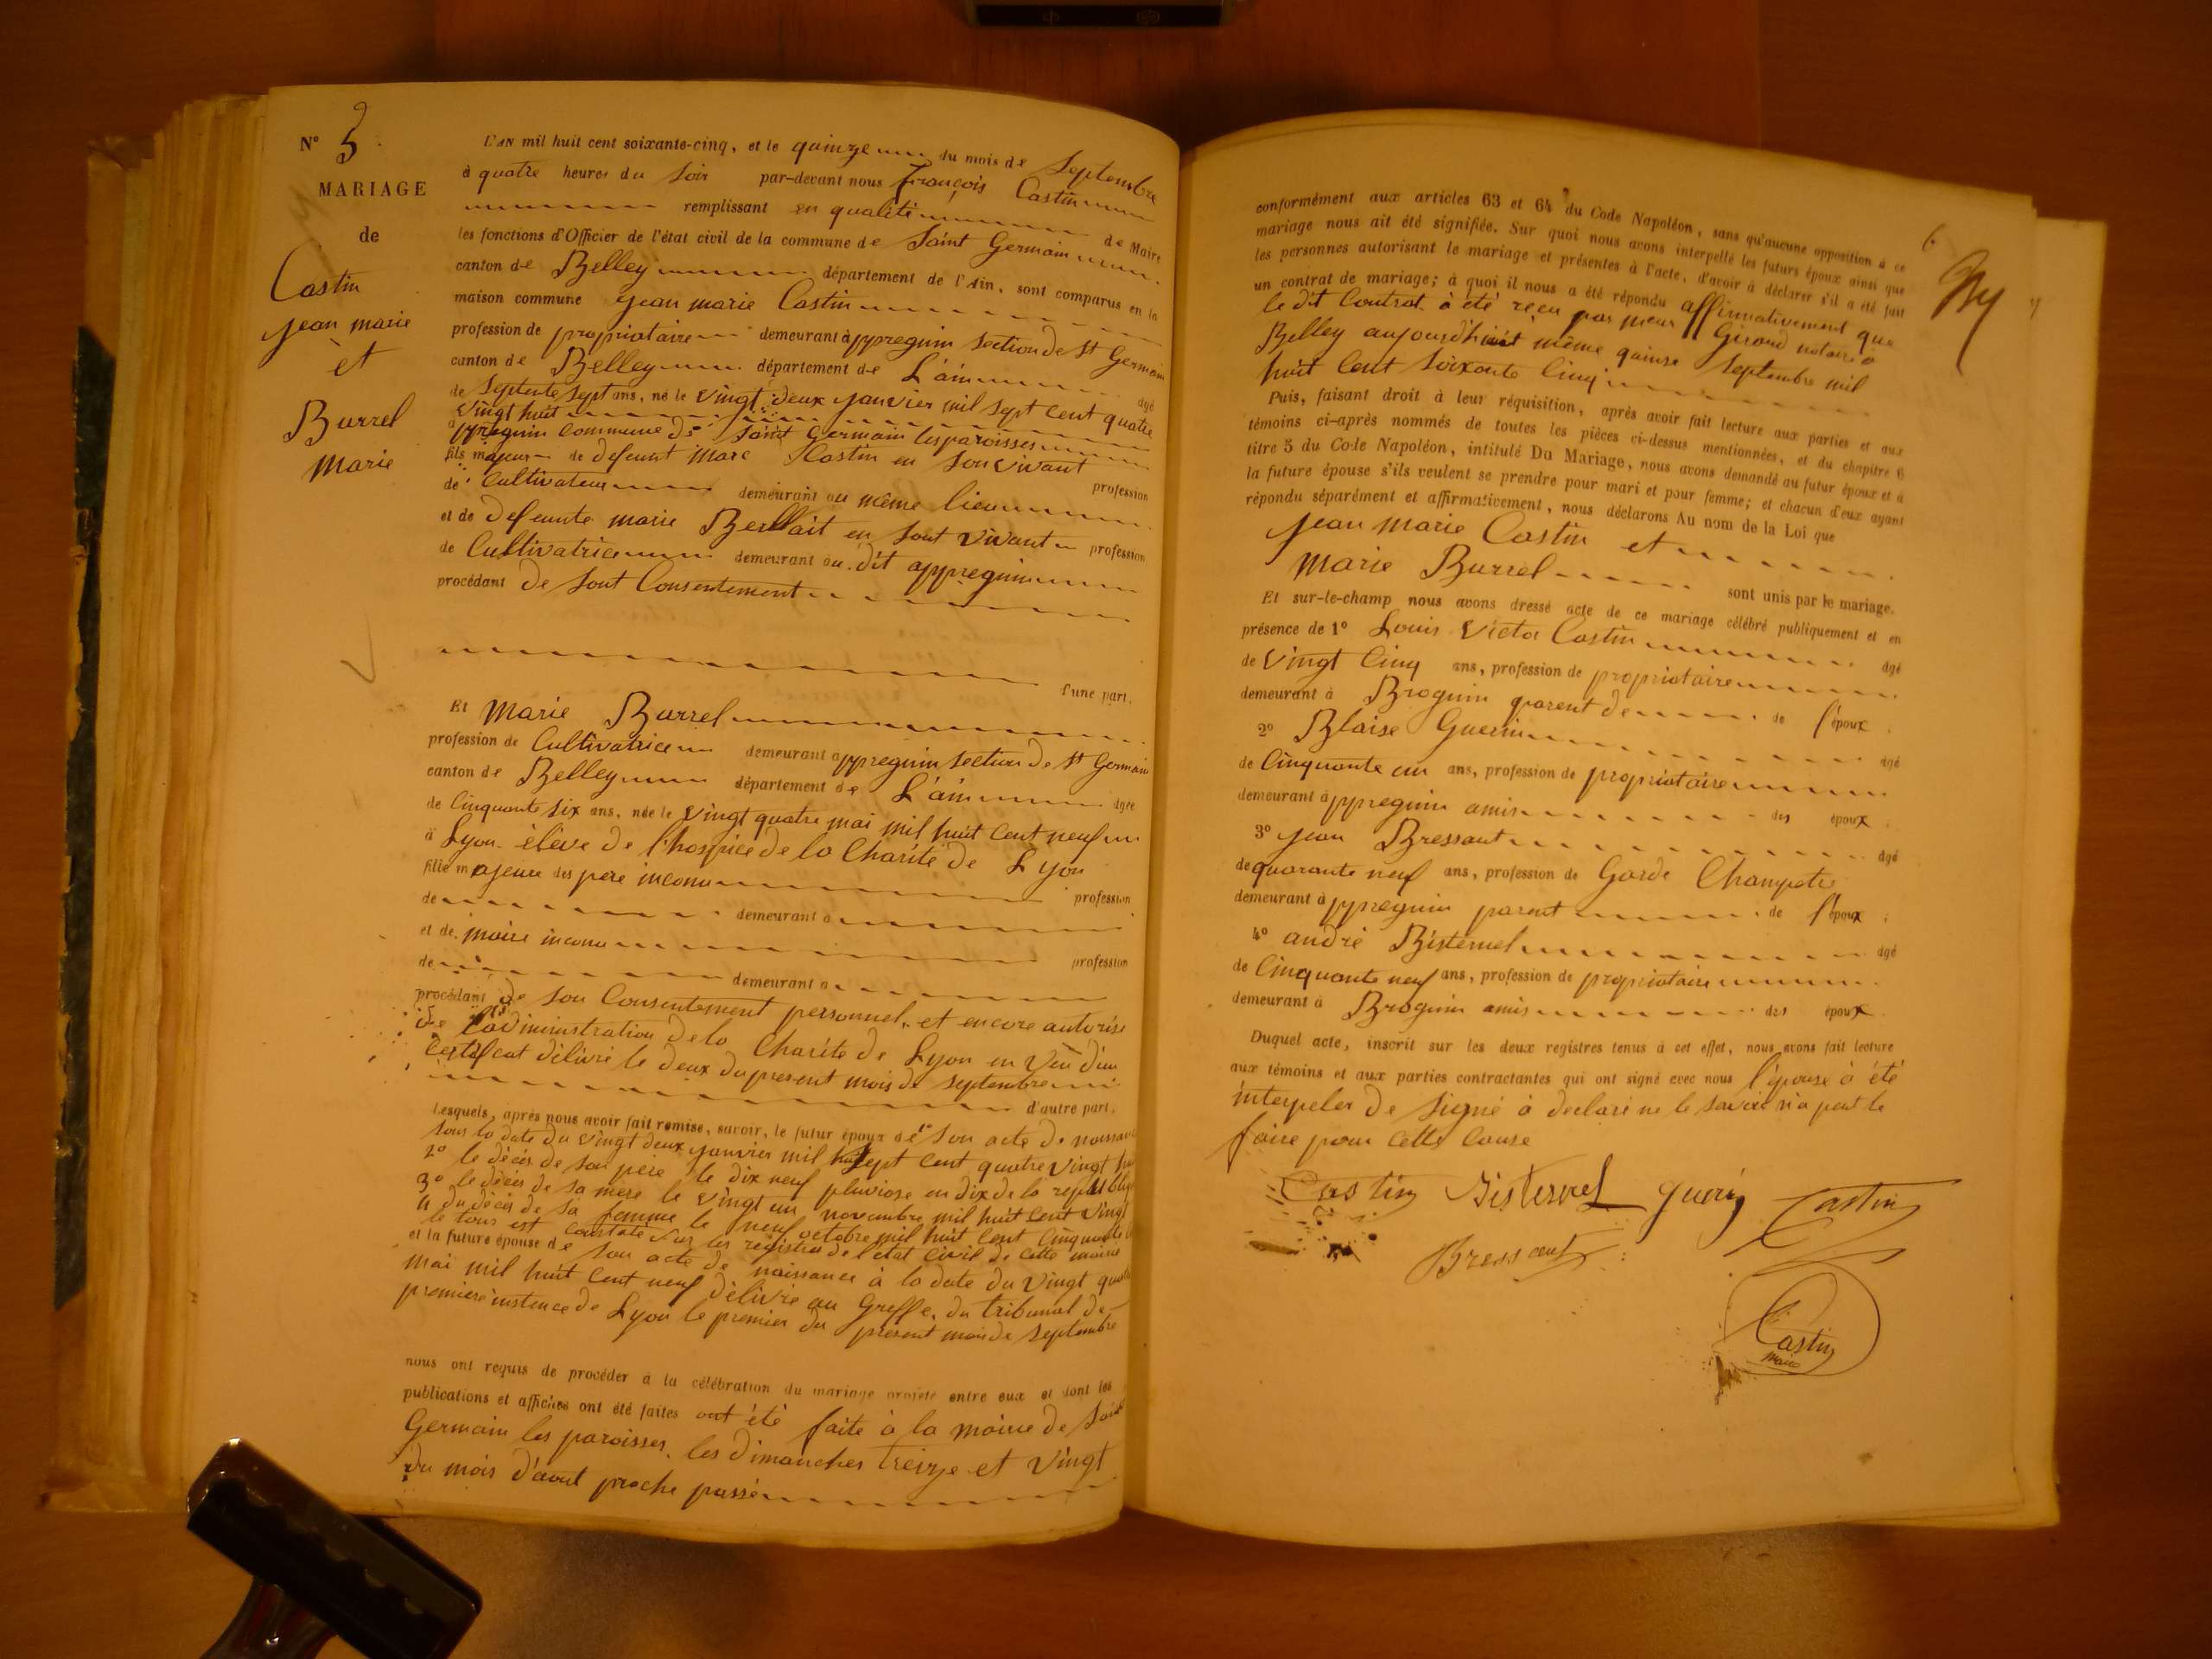 N° 5
MARIAGE
de
Castin
jean marie
et
Burrel
Marie
L'AN mil huit cent soixante-cinq, et le quinze du mois de Septembre
à quatre heures du soir par-devant nous François Castin
remplissant en qualité de Maire
les fonctions d'Officier de l'état civil de la commune de Saint Germain
canton de Belley département de l'Ain, sont comparus en la
maison commune jean marie Castin
profession de propriataire demeurant à appreguin section de St Germain
canton de Belley département de L'ain âgé
de Septente sept ans, né le vingt deux janvier mil sept cent quatre
vingt huit
à appreguin commune de Saint Germain les paroisses
fils majeur de defeunt Marc Castin en son vivant profession
de Cultivateur demeurant au même lieu
et de defeunte marie Berllait en sont vivant profession
de Cultivatrice demeurant au dit appreguin
procédant de sont Consentement
d'une part.
Et Marie Burrel
profession de Cultivatrice demeurant appreguin section de St Germain
canton de Belley département de L'ain âgée
de Cinquante six ans, née le vingt quatre mai mil huit cent neuf
à Lyon élève de l'hospice de la Charité de Lyon
fille majeure des père inconu profession
de demeurant à
et de maire inconu profession
de demeurant à
procédant de son Consentement personnel, et encore autorisé
de l'administration de la Charité de Lyon en vëu d'un
Certificat délivré le deux du present mois de septembre
d'autre part.
Lesquels, après nous avoir fait remise, savoir, le futur époux de 1° son acte de naissance
sous la date du vingt deux janvier mil sept cent quatre vingt
2° le décès de son père le dix neuf pluviose an dix de la republique
3° le décès de sa mère le vingt un novembre mil huit cent vingt
4 du décès de sa femme le neuf octobre mil huit cent cinquante
le tous est constaté sur les registres de l'état civil de cette mairie
et la future épouse de son acte de naissance à la date du vingt quatre
mai mil huit cent neuf délivré au Greffe, du tribunal de
première instence de Lyon le premier du présent mois de septembre
nous ont requis de procéder à la célébration du mariage projeté entre eux et dont les
publications et affiches ont été faites ont été faite à la mairie de Saint
Germain les paroisses, les dimanches treize et vingt
du mois d'aout proche passé
6.
conformément aux articles 63 et 64 du Code Napoléon, sans qu'aucune opposition à ce
mariage nous ait été signifiée. Sur quoi nous avons interpellé les futurs époux ainsi que
les personnes autorisant le mariage et présentes à l'acte, d'avoir à déclarer s'il a été fait
un contrat de mariage; à quoi il nous a été répondu affirmativement que
le dit Contrat à été reçu par Giroud notaire à
Belley aujourd'hui même quinze Septembre mil
huit Cent soixante Cinq
Puis, faisant droit à leur réquisition, après avoir fait lecture aux parties et aux
témoins ci-après nommés de toutes les pièces ci-dessus mentionnées, et du chapitre 6
titre 5 du Code Napoléon, intitulé Du Mariage, nous avons demandé au futur époux et à
la future épouse s'ils veulent se prendre pour mari et pour femme; et chacun d'eux ayant
répondu séparément et affirmativement, nous déclarons Au nom de la Loi que
jean marie Castin et
Marie Burrel sont unis par le mariage.
Et sur-le-champ nous avons dressé acte de ce mariage célébré publiquement et en
présence de 1° Louis Victor Castin âgé
de vingt Cinq ans, profession de propriataire
demeurant à Broguin parent de de l'époux
2° Blaise Guerin âgé
de Cinquante un ans, profession de propriataire
demeurant à appreguin amis des époux
3° jean Bressaut âgé
de quarante neuf ans, profession de Garde Champetre
demeurant à appreguin parent de l'époux
4° andré Bisternel âgé
de Cinquante neuf ans, profession de propriataire
demeurant à Broguin amis des époux
Duquel acte, inscrit sur les deux registres tenus à cet effet, nous avons fait lecture
aux témoins et aux parties contractantes qui ont signé avec nous l'épouse à été
interpeler de signé à declaré ne le savoir n'a peut le
faire pour cette Cause
Castin Bisternel guerin Castin
Bressaut
Castin
maire